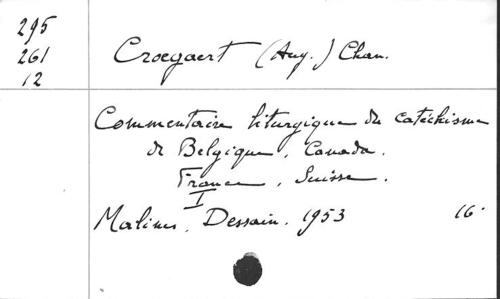 295
261
12
Croegaert (Aug.) Chan.
Commentaire liturgique du catéchisme
de Belgique, Canada.
France, Suisse.
I
Malines, Dessain. 1953 16°